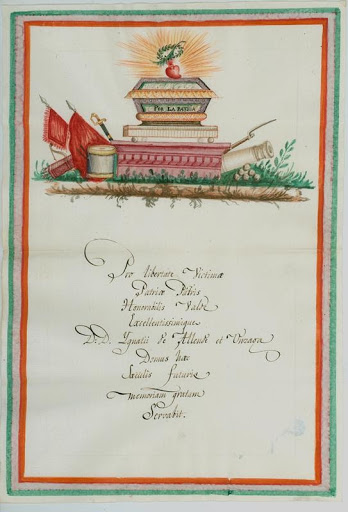 POR LA PATRIA
Pro libertate Victimæ
Patriæ Patris
Honorabilis Valde
Excellentissimique
D. D. Ignatii de Allende et Unzaga
Domus hæc
Sæculis futuris
memoriam gratam
Servabit.